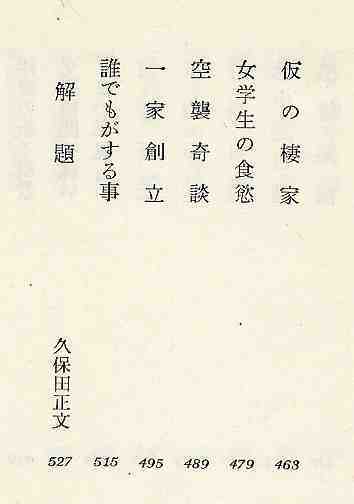 仮の棲家 463
女学生の食慾 479
空襲奇談 489
一家創立 495
誰でもがする事 515
解題 久保田正文 527